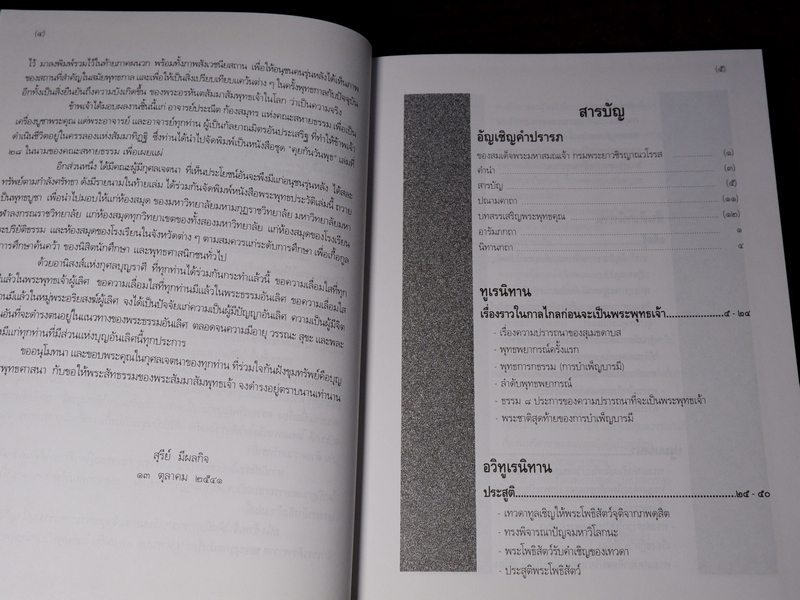 (๔)
ไว้ มาลงพิมพ์รวมไว้ในท้ายภาคผนวก พร้อมทั้งภาพสังเวชนียสถาน เพื่อให้อนุชนคนรุ่นหลังได้เห็นภาพ
ของสถานที่สำคัญในสมัยพุทธกาล และเพื่อให้เป็นสิ่งเปรียบเทียบแคว้นต่าง ๆ ในครั้งพุทธกาลกับปัจจุบัน
อีกทั้งเป็นสิ่งยืนยันถึงความบังเกิดขึ้น ของพระอรหันตสัมมาสัมพุทธเจ้าในโลก ว่าเป็นความจริง
ข้าพเจ้าได้มอบผลงานชิ้นนี้แก่ อาจารย์ประณีต ก้องสมุทร แห่งคณะสหายธรรม เพื่อเป็น
เครื่องบูชาพระคุณ แด่พระอาจารย์ และอาจารย์ทุกท่าน ผู้เป็นกัลยาณมิตรอันประเสริฐ ที่ทำให้ข้าพเจ้า
ดำเนินชีวิตอยู่ในครรลองแห่งสัมมาทิฏฐิ ซึ่งท่านได้นำไปจัดพิมพ์เป็นหนังสือชุด "คุยกันวันพุธ" เล่มที่
๒๘ ในนามของคณะสหายธรรม เพื่อเผยแผ่
อีกส่วนหนึ่ง ได้มีคณะผู้มีกุศลเจตนา ที่เห็นประโยชน์อันจะพึงมีแก่อนุชนรุ่นหลัง ได้สละ
ทรัพย์ตามกำลังศรัทธา ดังมีรายนามในท้ายเล่ม ได้ร่วมกันจัดพิมพ์หนังสือพระพุทธประวัติเล่มนี้ ถวาย
เป็นพุทธบูชา เพื่อนำไปมอบให้แก่ห้องสมุด ของมหาวิทยาลัยมหามกุฏราชวิทยาลัย มหาวิทยาลัยมหา
ฬาลงกรณราชวิทยาลัย แก่ห้องสมุดทุกวิทยาเขตของทั้งสองมหาวิทยาลัย แก่ห้องสมุดของโรงเรียน
ะปริยัติธรรม และห้องสมุดของโรงเรียนในจังหวัดต่าง ๆ ตามสมควรแก่ระดับการศึกษา เพื่อเกื้อกูล
การศึกษาค้นคว้า ของนิสิตนักศึกษา และพุทธศาสนิกชนทั่วไป
ด้วยอานิสงส์แห่งกุศลบุญราศี ที่ทุกท่านได้ร่วมกันกระทำแล้วนี้ ขอความเลื่อมใสที่ทุก
ีแล้วในพระพุทธเจ้าผู้เลิศ ขอความเลื่อมใสที่ทุกท่านมีแล้วในพระธรรมอันเลิศ ขอความเลื่อมใส
านมีแล้วในหมู่พระอริยสงฆ์ผู้เลิศ จงได้เป็นปัจจัยแก่ความเป็นผู้มีปัญญาอันเลิศ ความเป็นผู้มีจิต
อันอันที่จะดำรงตนอยู่ในแนวทางของพระธรรมอันเลิศ ตลอดจนความมีอายุ วรรณะ สุขะ และพละ
งมีแก่ทุกท่านที่มีส่วนแห่งบุญอันเลิศนี้ทุกประการ
ขออนุโมทนา และขอบพระคุณในกุศลเจตนาของทุกท่าน ที่ร่วมใจกันฝังขุมทรัพย์คือบุญ
พุทธศาสนา กับขอให้พระสัทธรรมของพระสัมมาสัมพุทธเจ้า จงดำรงอยู่ตราบนานเท่านาน
สุรีย์ มีผลกิจ
๑๓ ตุลาคม ๒๕๔๑
(๕)
สารบัญ
อัญเชิญคำปรารภ
ของสมเด็จพระมหาสมณเจ้า กรมพระยาวชิรญาณวโรรส (๑)
คำนำ (๓)
สารบัญ (๕)
ปณามคาถา (๑๑)
บทสรรเสริญพระพุทธคุณ (๑๒)
อารัมภกถา ๑
นิทานกถา ๔
ทูเรนิทาน
เรื่องราวในกาลไกลก่อนจะเป็นพระพุทธเจ้า....................๕ - ๒๔
- เรื่องความปรารถนาของสุเมธดาบส
- พุทธพยากรณ์ครั้งแรก
- พุทธการกธรรม (การบำเพ็ญบารมี)
- ลำดับพุทธพยากรณ์
- ธรรม ๘ ประการของความปรารถนาที่จะเป็นพระพุทธเจ้า
- พระชาติสุดท้ายของการบำเพ็ญบารมี
อวิทูเรนิทาน
ประสูติ....................๒๕ - ๕๐
- เทวดาทูลเชิญให้พระโพธิสัตว์จุติจากภพดุสิต
- ทรงพิจารณาปัญจมหาวิโลกนะ
- พระโพธิสัตว์รับคำเชิญของเทวดา
- ประสูติพระโพธิสัตว์